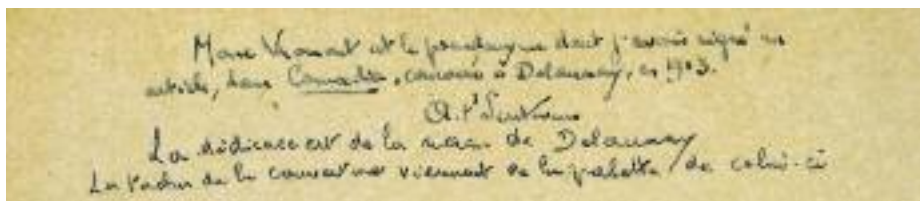 Marc Vromant est le pseudonyme dont j'avais signé un
article, dans Comœdia, consacré à Delaunay, en 1913.
La dédicace est de la main de Delaunay
La tache de la couverture viennent de la palette de celui-ci